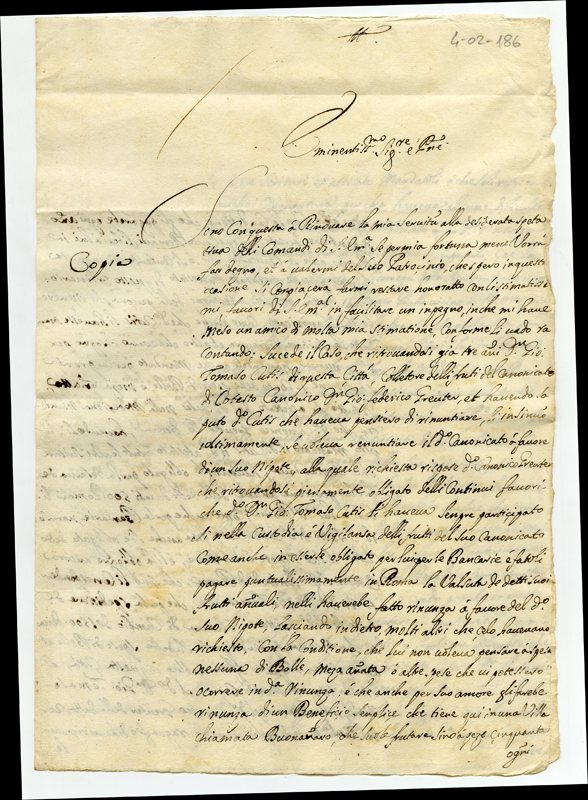 4-02-186
Eminentiss.mo Sig.re e Pne.
Copia
Seno Con questa à Rinovare la mia Servitù alla desiderata speta
tiva delli Comandi di S. Em.a se per mia fortuna mene Vorrà
far degno, et à valermi del Suo Patrocinio, che spero in questa
occasione si Compiacerà farmi restare honorato con li stimatissi
mi favori di S. Em.a in facilitare un impegno, in che mi have
Meso un amico di molta mia stimatione, Conforme li vado ra
Contando; Sucede il Caso, che ritrovandosi già tre anni Dn. Gio:
Tomaso Cutis di questa Città, Colletore delli fruti del Canonicato
di Cotesto Canonico Dn. Gio: Federico Greuter, et havendo sa
puto d.o Cutis che haveva pensiero di rinuntiare, l'insinuò
ultimamente, se voleva renuntiare il d.o Canonicato à favore
di un Suo Nipote, alla quale richiesta rispose d.o Canonico Greuter
che ritrovandosi pienamente obligato delli Continui favori
che d.o Dn. Gio: Tomaso Cutis li haveva sempre participato
sì nella Custodia é Vigilansa delli frutti del Suo Canonicato
Come anche in esserle obligato per
le Bancarie è fatoli
pagare puntualissimamente in Roma la Valsuta de detti Suoi
frutti añuali, nelli haverebe fatto rinunza à favore del d.o
Suo Nipote, lasciando indietro, molti altri che Celo havevano
richiesto, Con la Conditione, che lui non voleva pensare à spesa
nessuna di Bolle, Meza añata ò altre spese che vi potessero
ocorrere in d.a rinunza, é che anche per Suo amore gli farebe
rinunza di un Beneficio semplice che tiene qui in una Villa
chiamata Buonañaro, che suole frutare sino à peze Cinquanta
ogni